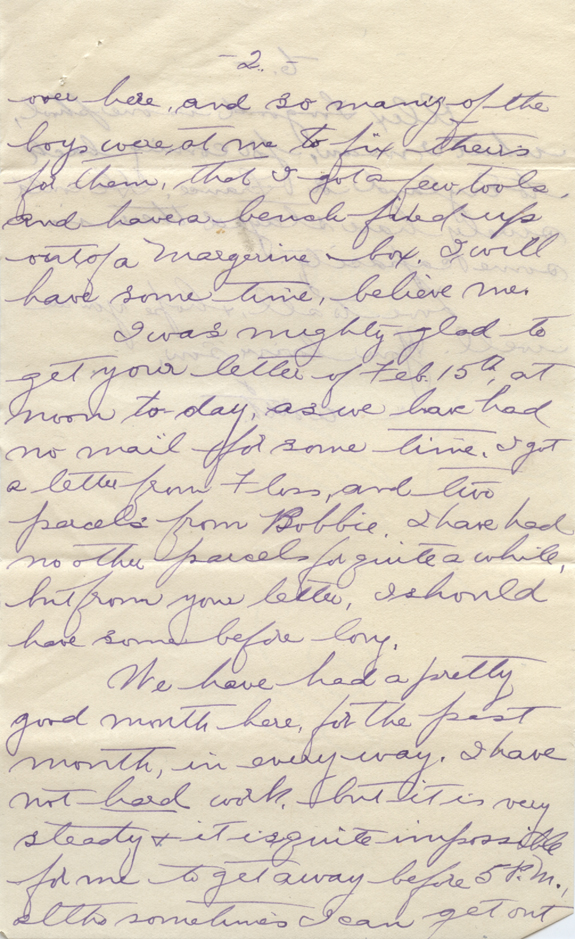 -2.
over here, and so many of the
boys were at me to fix theirs
for them, that I got a few tools,
and have a bench fixed up
out of a Margerine box. I will
have some time, believe me.
I was mighty glad to
get your letter of Feb. 15th, at
noon to-day, as we have had
no mail for some time. I got
a letter from Floss, and two
parcels from Bobbie. I have had
no other parcels for quite a while,
but from your letter, I should
have some before long.
We have had a pretty
good month here, for the past
month, in every way. I have
not hard work, but it is very
steady & it is quite impossible
for me to get away before 5 P.M.,
altho sometimes I can get out